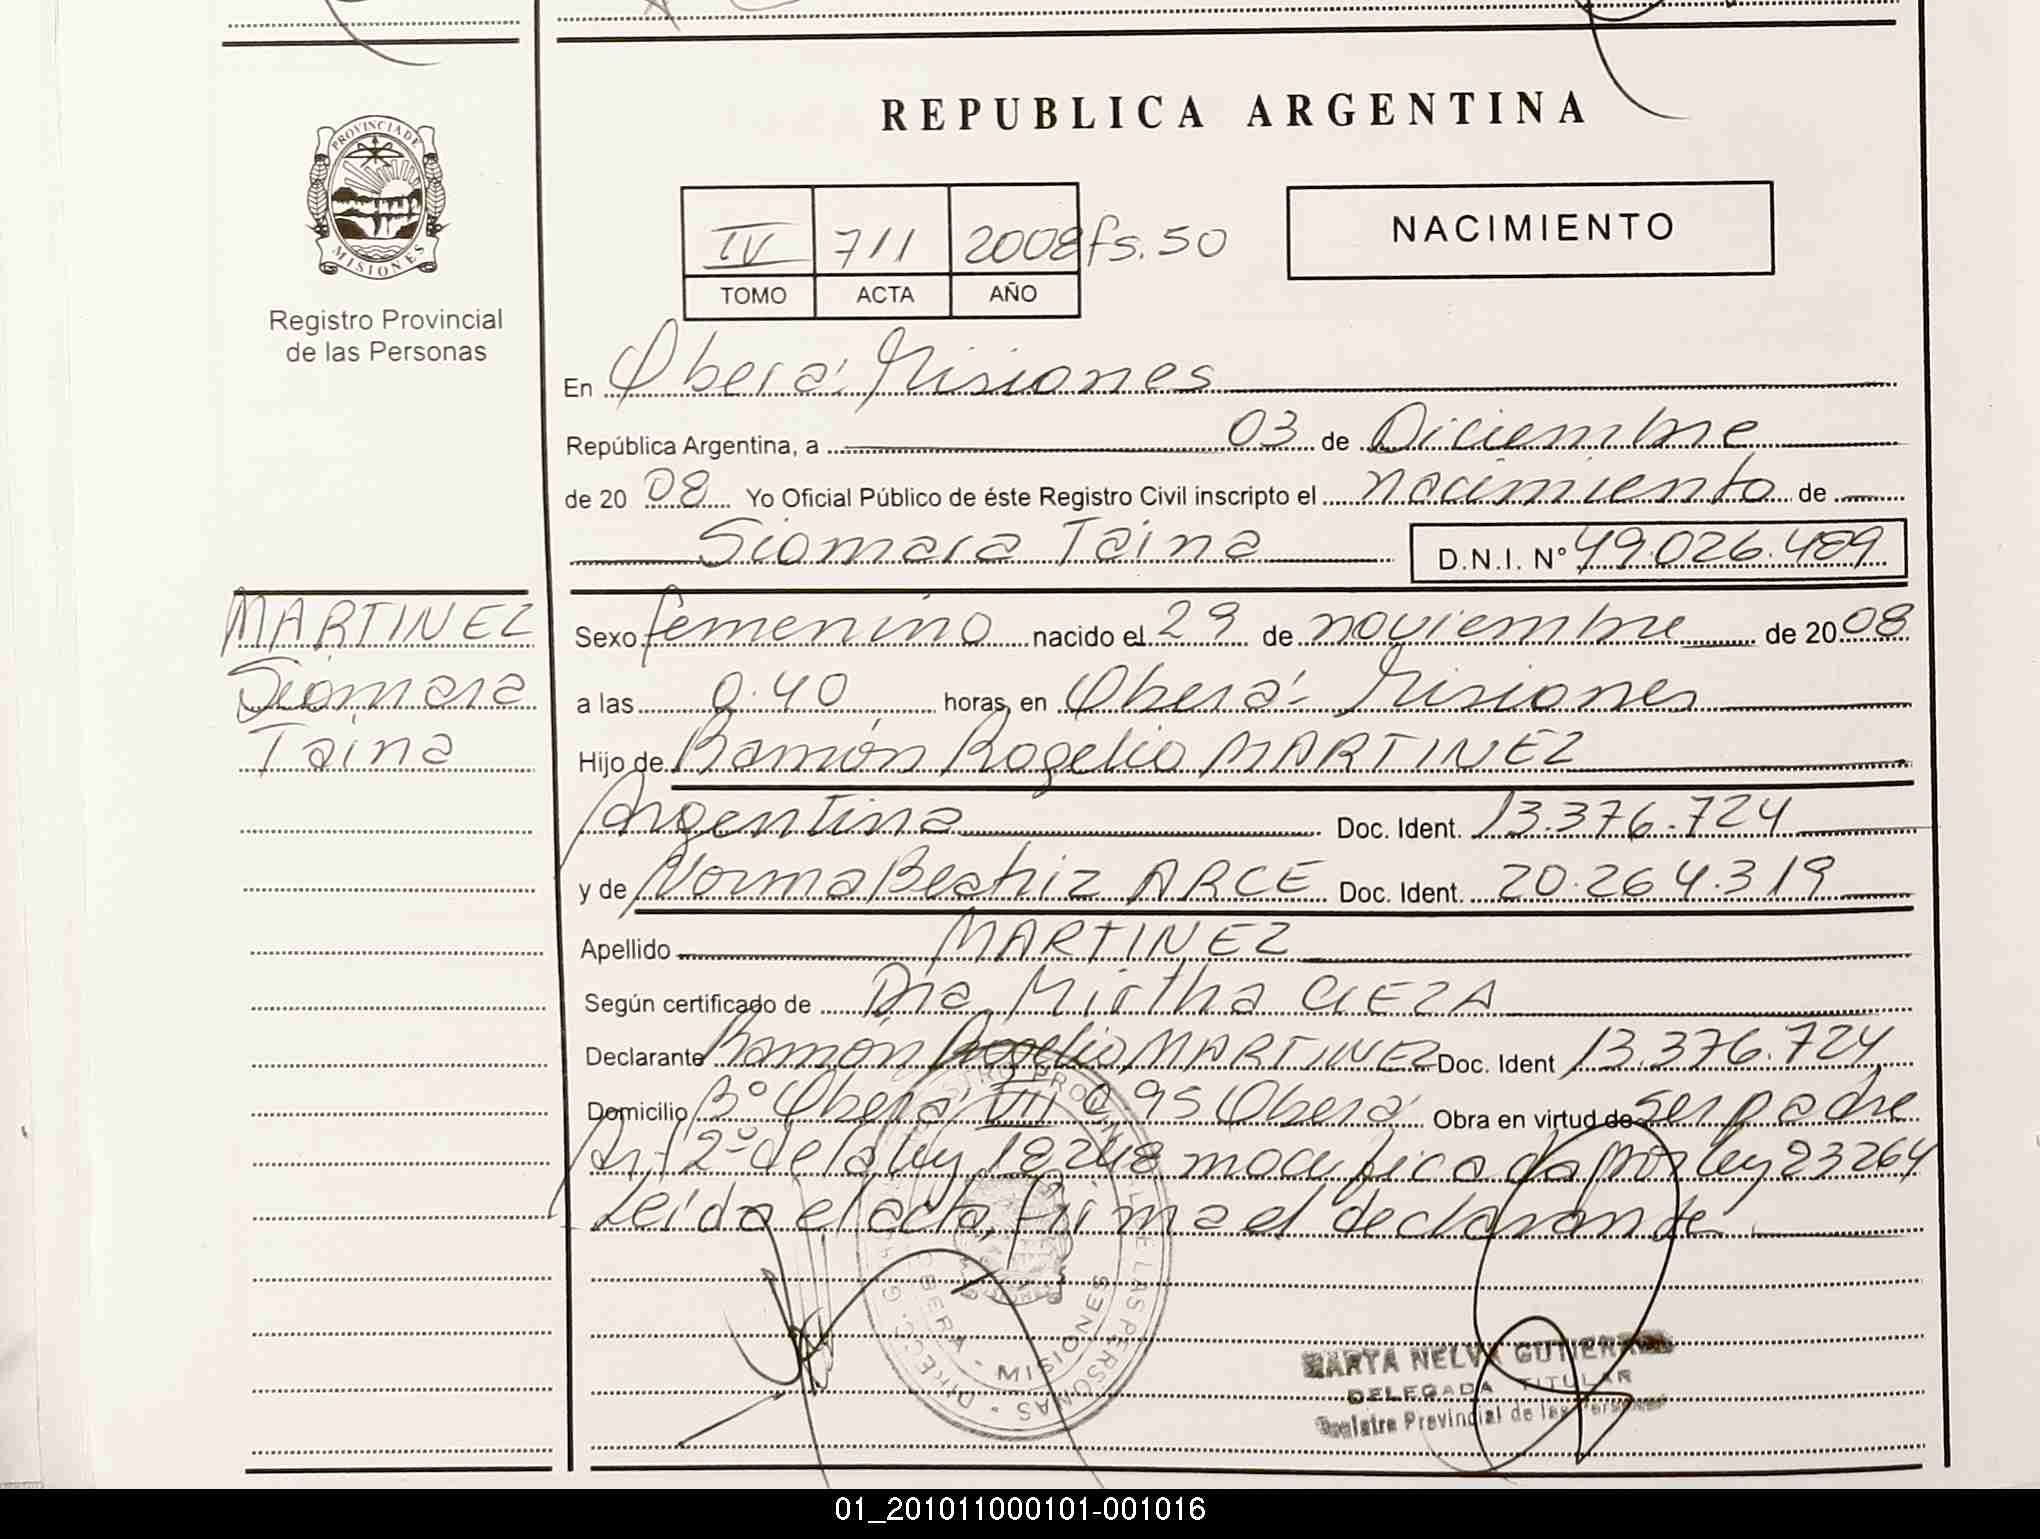 REPUBLICA ARGENTINA
PROVINCIA DE
MISIONES
Registro Provincial
de las Personas
IV 711 2008 fs. 50
TOMO ACTA AÑO
NACIMIENTO
En Oberá: Misiones
República Argentina, a 03 de Diciembre
de 2008 Yo Oficial Público de éste Registro Civil inscripto el nacimiento de
Siomara Taina D.N.I. Nº 49.026.489
MARTINEZ
Siomara
Taina
Sexo femenino nacido el 29 de noviembre de 2008
a las 0.40 horas, en Oberá- Misiones
Hijo de Ramón Rogelio MARTINEZ
Argentina Doc. Ident. 13.376.724
y de Norma Beatriz ARCE Doc. Ident. 20.264.319
Apellido MARTINEZ
Según certificado de Dra. Mirtha CIEZA
Declarante Ramón Rogelio MARTINEZ Doc. Ident 13.376.724
Domicilio Bº Oberá VII C 95 Oberá Obra en virtud de ser padre
Art 2º de la ley 18248 modificada por ley 23264
Leída el acta, firma el declarante
OBERA - MISIONES
DE LAS PERSONAS
MARTA NELVA GUTIERREZ
DELEGADA TITULAR
Registro Provincial de las Personas
01_201011000101-001016